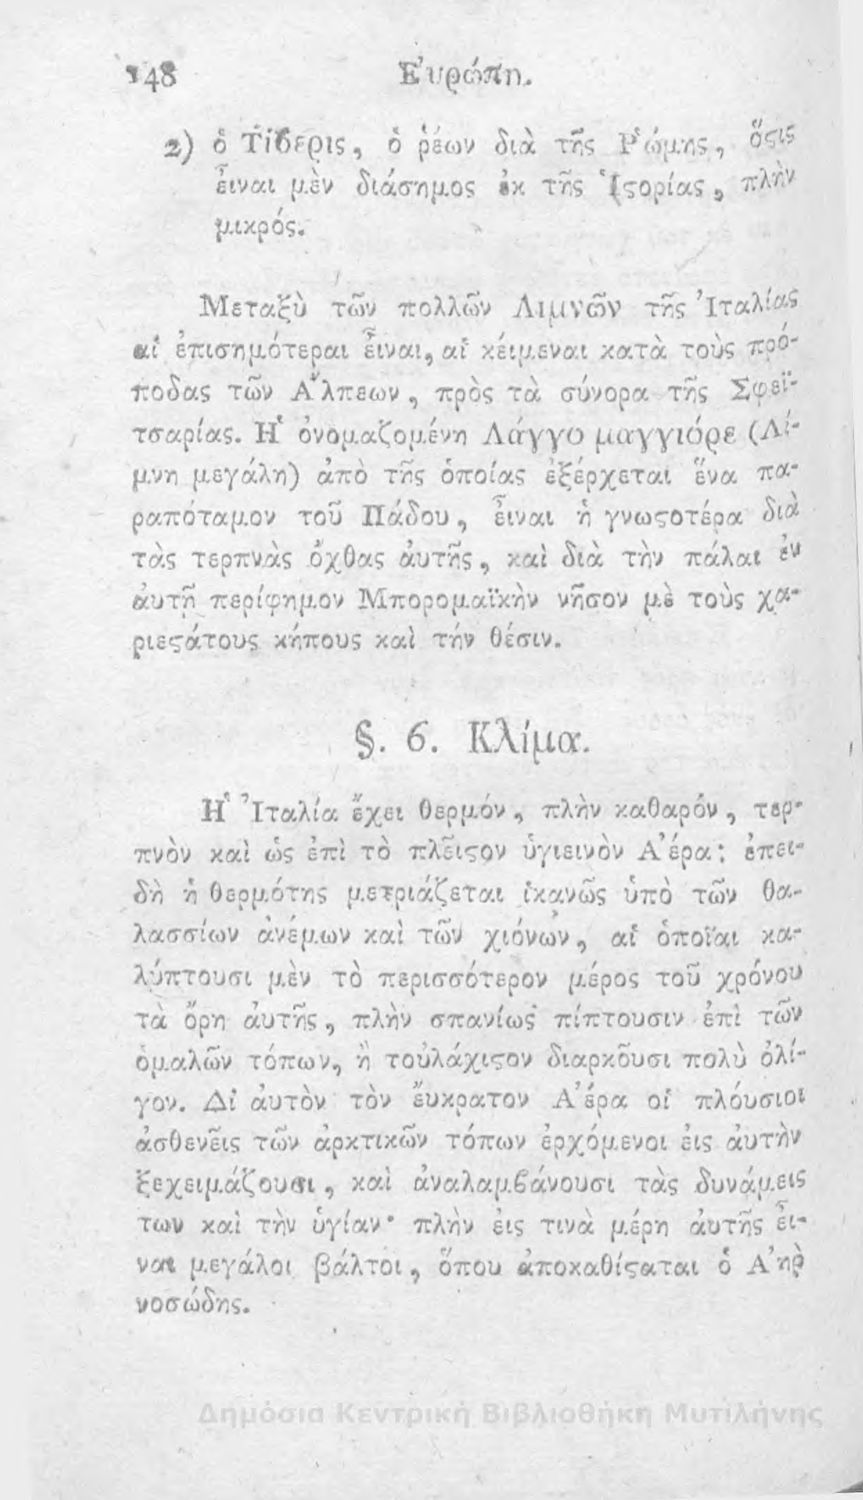 148 Εὐρώπη.
2) ὁ Τίβερις, ὁ ῥέων διὰ τῆς Ῥώμης, ὅϛις
εἶναι μὲν διάσημος ἐκ τῆς Ἱϛορίας, πλὴν
μικρός.
Μεταξὺ τῶν πολλῶν Λιμνῶν τῆς Ἰταλίας
αἱ ἐπισημότεραι εἶναι, αἱ κείμεναι κατὰ τοὺς πρό-
ποδας τῶν Ἄλπεων, πρὸς τὰ σύνορα τῆς Σφεϊ-
τσαρίας. Ἡ ὀνομαζομένη Λάγγο μαγγιόρε (Λί-
μνη μεγάλη) ἀπὸ τῆς ὁποίας ἐξέρχεται ἕνα πα-
ραπόταμον τοῦ Πάδου, εἶναι ἡ γνωϛοτέρα διὰ
τὰς τερπνὰς ὄχθας ἀυτῆς, καὶ διὰ τὴν πάλαι ἐν
ἀυτῇ περίφημον Μπορομαϊκὴν νῆσον μὲ τοὺς χα-
ριεϛάτους κήπους καὶ τὴν θέσιν.
§. 6. Κλίμα.
Ἡ Ἰταλία ἔχει θερμόν, πλὴν καθαρόν, τερ-
πνὸν καὶ ὡς ἐπὶ τὸ πλεῖϛον ὑγιεινὸν Ἀέρα· ἐπει-
δὴ ἡ θερμότης μετριάζεται ἱκανῶς ὑπὸ τῶν θα-
λασσίων ἀνέμων καὶ τῶν χιόνων, αἱ ὁποῖαι κα-
λύπτουσι μὲν τὸ περισσότερον μέρος τοῦ χρόνου
τὰ ὄρη ἀυτῆς, πλὴν σπανίως πίπτουσιν ἐπὶ τῶν
ὁμαλῶν τόπων, ἢ τοὐλάχιϛον διαρκοῦσι πολὺ ὀλί-
γον. Δἰ ἀυτὸν τὸν ἔυκρατον Ἀέρα οἱ πλόυσιοι
ἀσθενεῖς τῶν ἀρκτικῶν τόπων ἐρχόμενοι ἐις ἀυτὴν
ξεχειμάζουσι, καὶ ἀναλαμβάνουσι τὰς δυνάμεις
των καὶ τὴν ὑγίαν· πλὴν ἐις τινὰ μέρη ἀυτῆς εἶ-
ναι μεγάλοι βάλτοι, ὅπου ἀποκαθίϛαται ὁ Ἀὴρ
νοσώδης.
Δημόσια Κεντρική Βιβλιοθήκη Μυτιλήνης